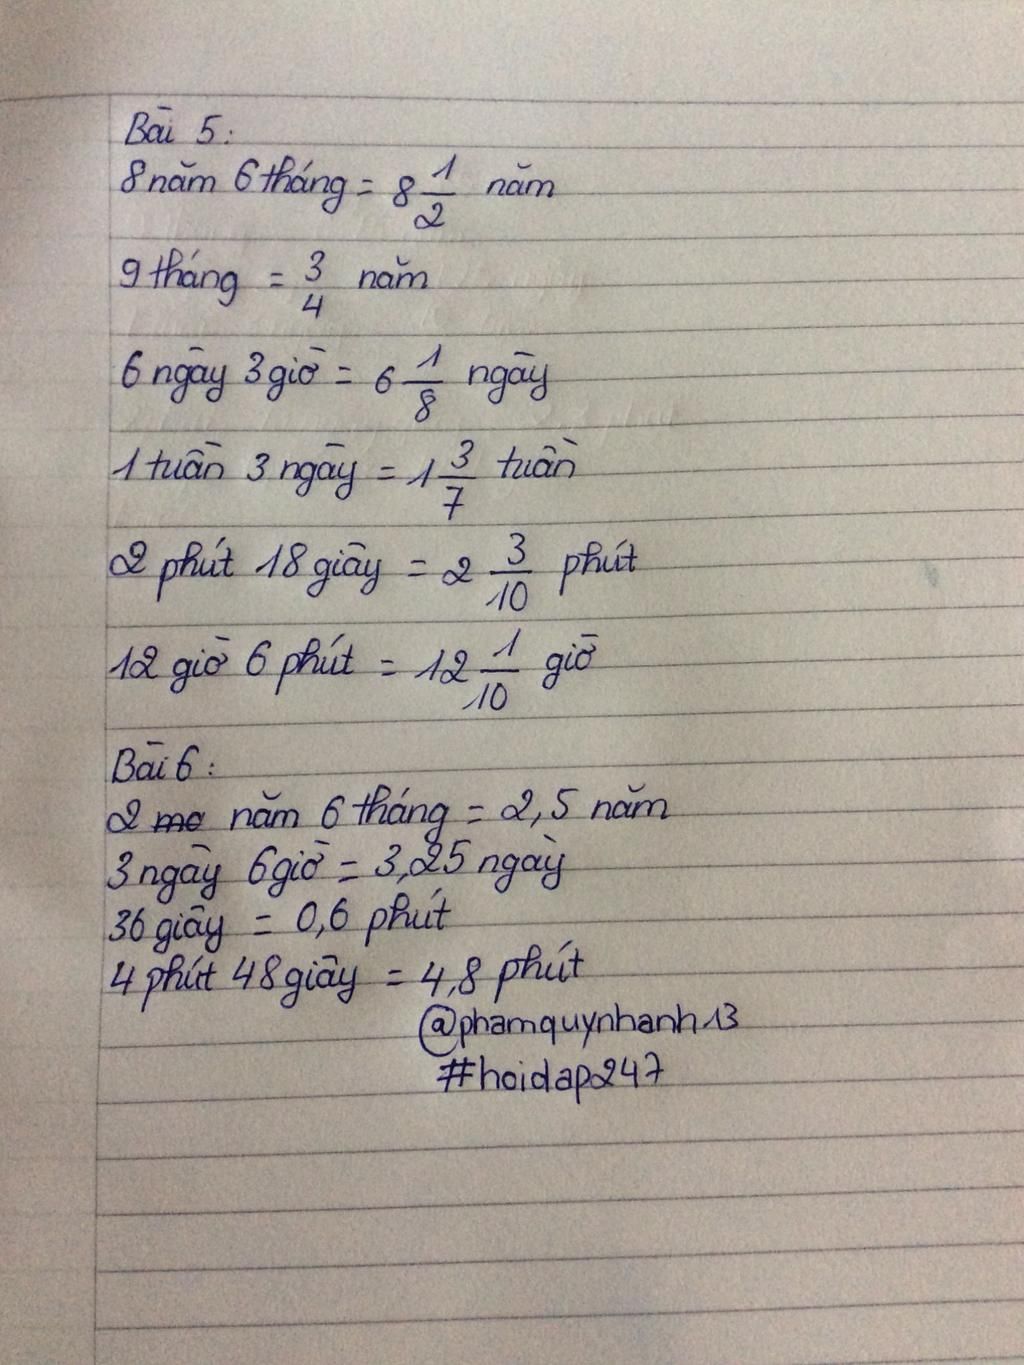 Bài 5:
8 năm 6 tháng = 8 1/2 năm
9 tháng = 3/4 năm
6 ngày 3 giờ = 6 1/8 ngày
1 tuần 3 ngày = 1 3/7 tuần
2 phút 18 giây = 2 3/10 phút
12 giờ 6 phút = 12 1/10 giờ
Bài 6:
2 năm 6 tháng = 2,5 năm
3 ngày 6 giờ = 3,25 ngày
36 giây = 0,6 phút
4 phút 48 giây = 4,8 phút
@phamquynhanh13
#hoidap247